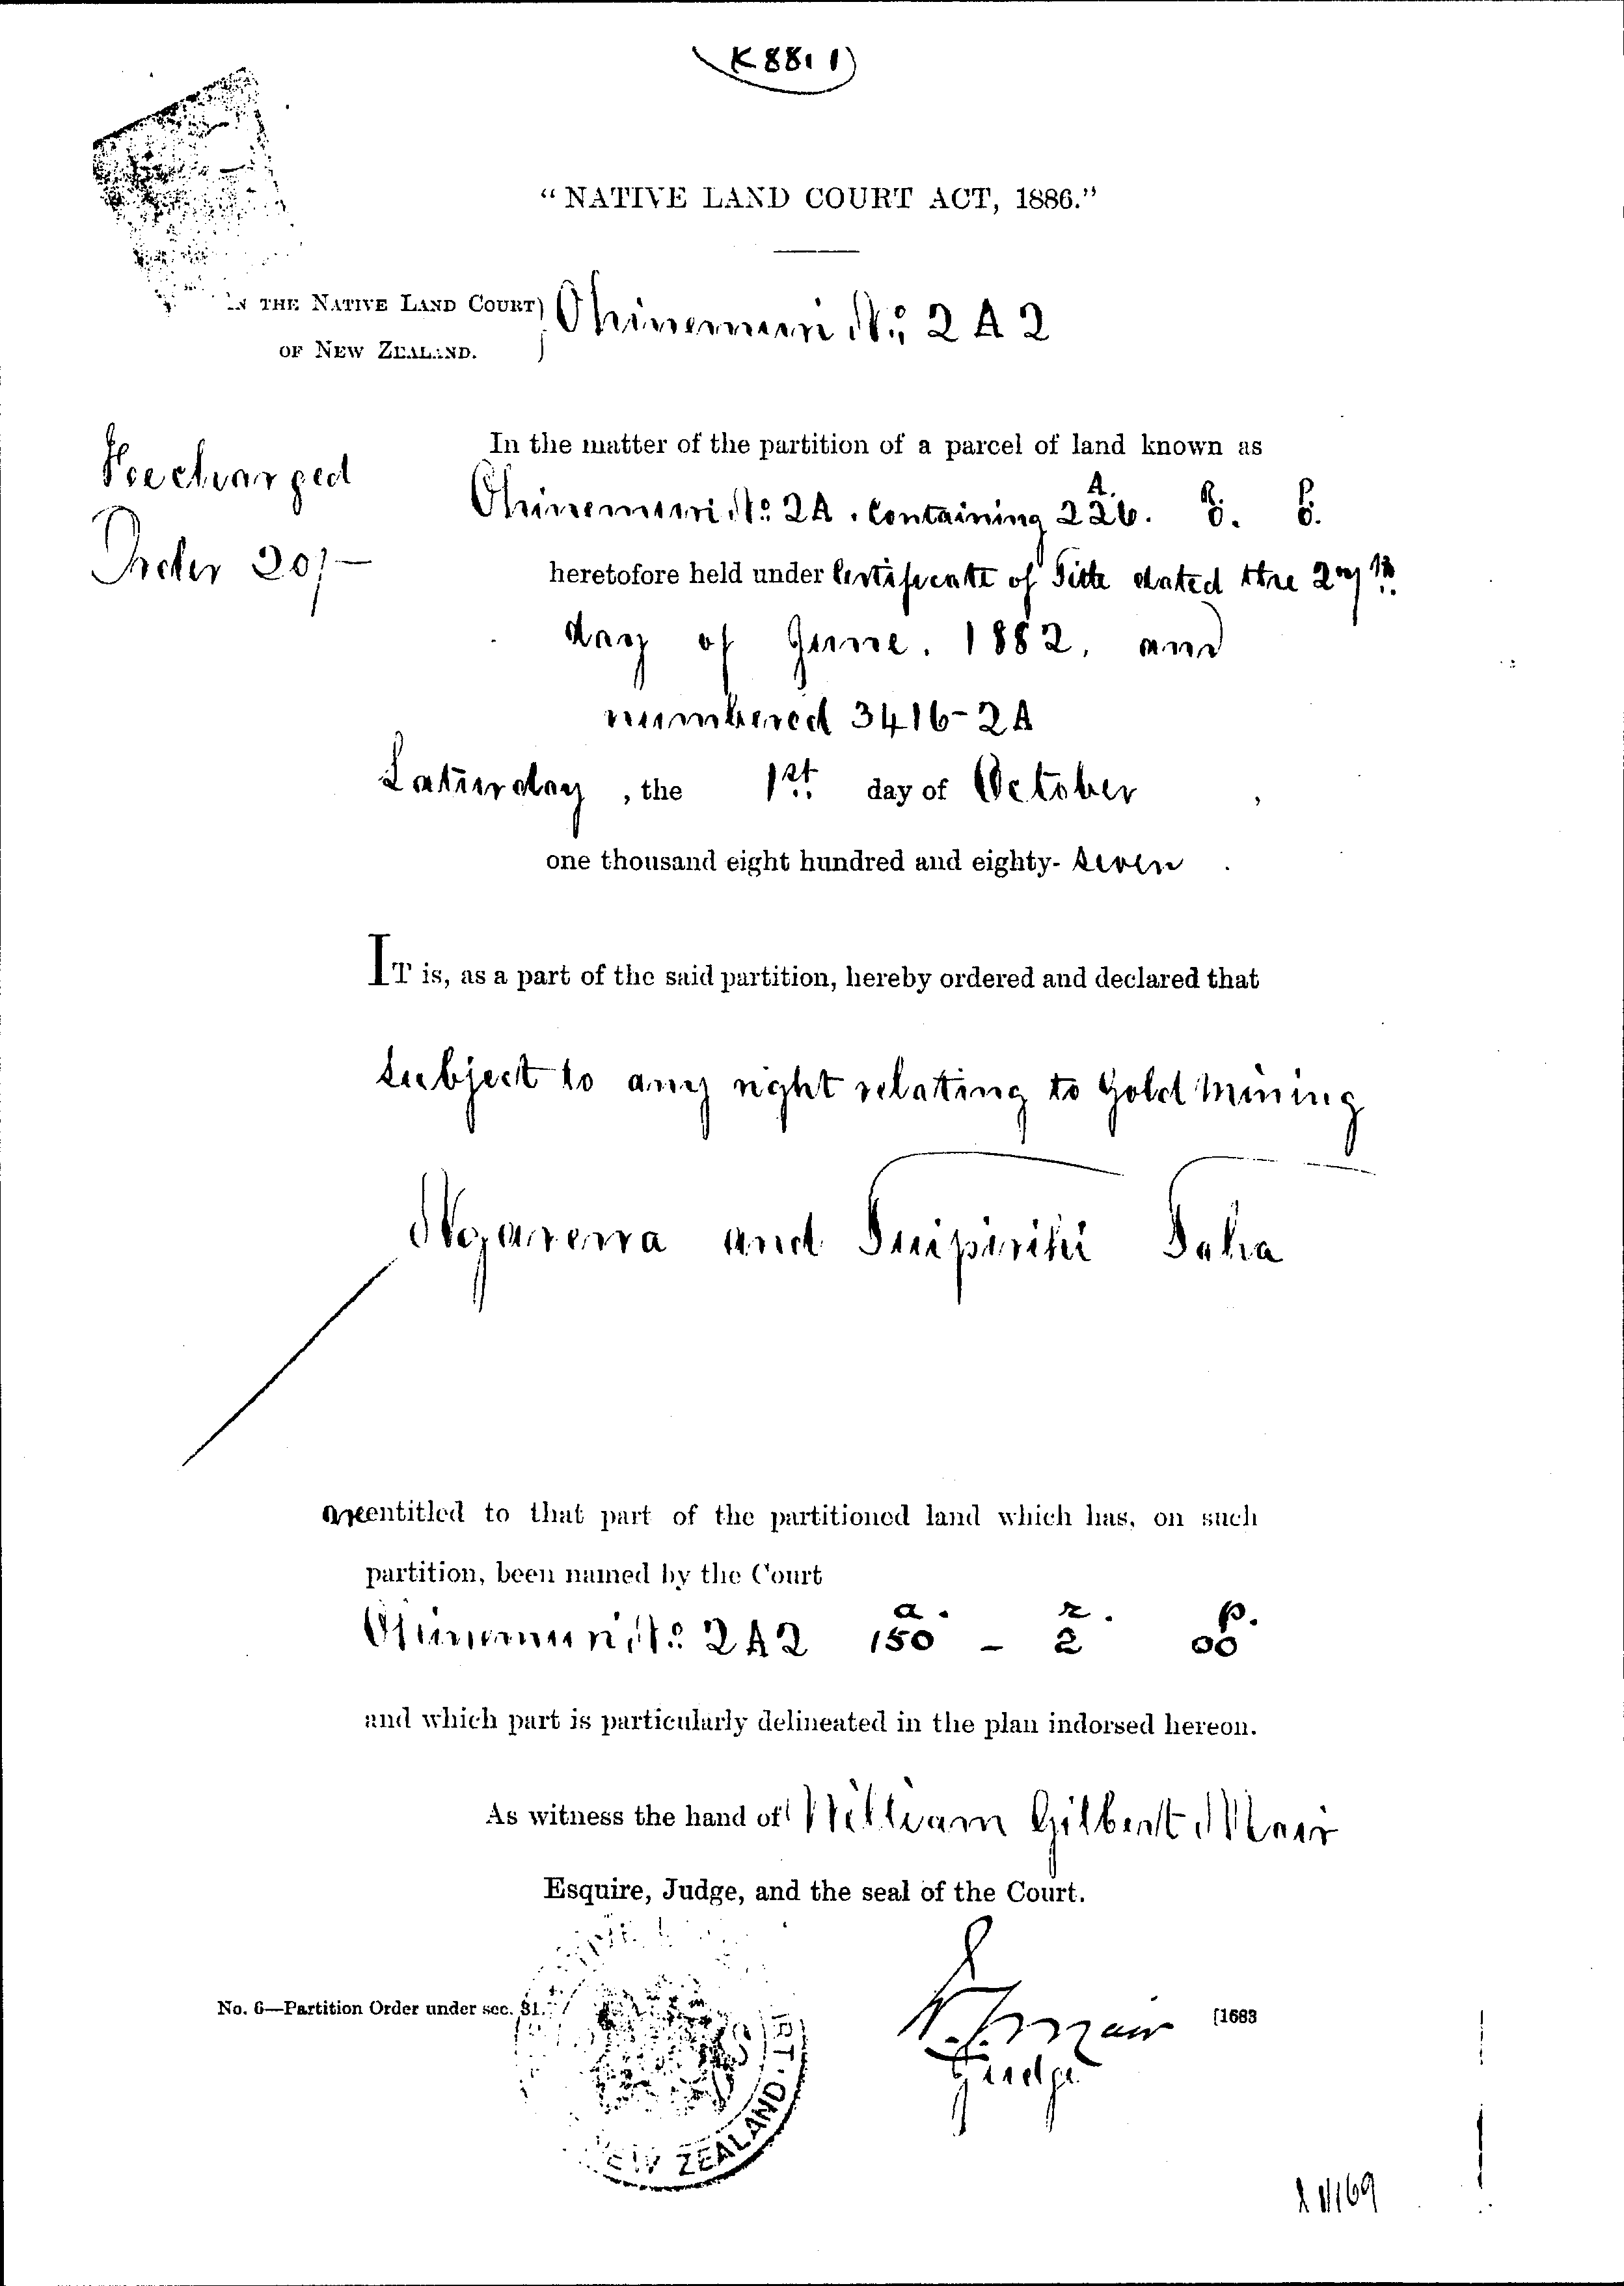 K 88. 1
"NATIVE LAND COURT ACT, 1886."
IN THE NATIVE LAND COURT
OF NEW ZEALAND.
Ohinemuri No. 2 A 2
In the matter of the partition of a parcel of land known as
Fee charged
Order 20/-
Ohinemuri No. 2A. containing 226. 0. 0.
A. R. P.
heretofore held under Certificate of Title dated the 27th
day of June. 1882, and
numbered 3416-2A
Saturday, the 1st day of October,
one thousand eight hundred and eighty-seven.
IT is, as a part of the said partition, hereby ordered and declared that
subject to any right relating to Gold Mining
Ngarena and Tuipiriki Taha
are entitled to that part of the partitioned land which has, on such
partition, been named by the Court
a. r. p.
Ohinemuri No. 2A2 150 - 2 00
and which part is particularly delineated in the plan indorsed hereon.
As witness the hand of William Gilbert Mair
Esquire, Judge, and the seal of the Court.
No. 6—Partition Order under sec. 31.
W. G. Mair
Judge
[1683
NEW ZEALAND